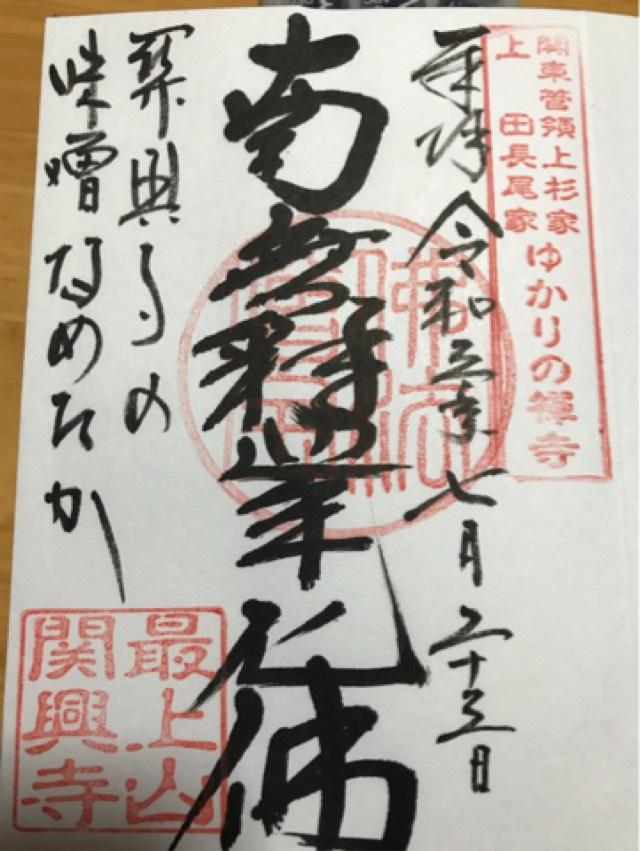 関東管領上杉家
上田長尾家
ゆかりの禅寺
奉拝 令和 七月二十 日
南無釋迦牟尼佛
佛法僧寶
関興寺の
味噌なめたか
最上山
関興寺